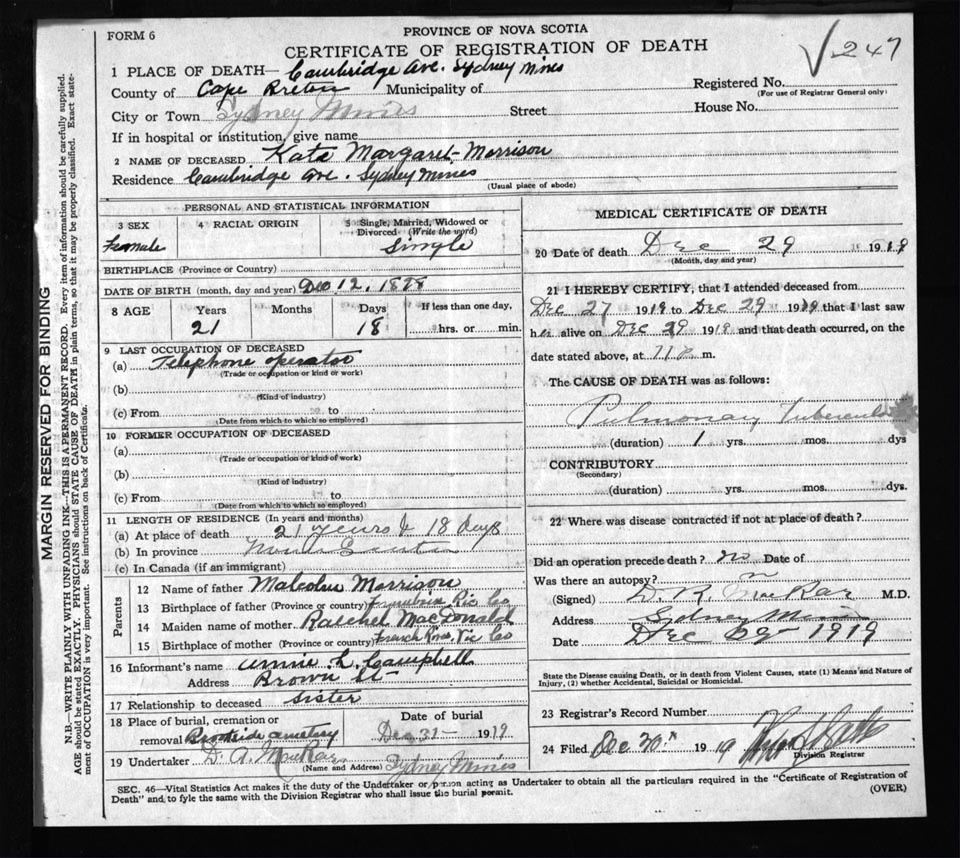 FORM 6
PROVINCE OF NOVA SCOTIA
CERTIFICATE OF REGISTRATION OF DEATH
√ 247
1 PLACE OF DEATH— Cambridge Ave. Sydney Mines
County of Cape Breton Municipality of
Registered No.
(For use of Registrar General only)
City or Town Sydney Mines Street House No.
If in hospital or institution, give name
2 NAME OF DECEASED Kate Margaret Morrison
Residence Cambridge Ave. Sydney Mines
(Usual place of abode)
MARGIN RESERVED FOR BINDING
N.B.—WRITE PLAINLY WITH UNFADING INK—THIS IS A PERMANENT RECORD. Every item of information should be carefully supplied.
AGE should be stated EXACTLY. PHYSICIANS should STATE CAUSE OF DEATH in plain terms, so that it may be properly classified. Exact statement of OCCUPATION is very important. See instructions on back of Certificate.
PERSONAL AND STATISTICAL INFORMATION
3 SEX 4 RACIAL ORIGIN 5 Single, Married, Widowed or Divorced (Write the word)
Female Single
BIRTHPLACE (Province or Country)
DATE OF BIRTH (month, day and year) Dec 12. 1898
8 AGE Years Months Days If less than one day,
21 18 hrs. or min.
9 LAST OCCUPATION OF DECEASED
(a) Telephone operator
(Trade or occupation or kind or work)
(b)
(Kind of industry)
(c) From to
(Date from which to which so employed)
10 FORMER OCCUPATION OF DECEASED
(a)
(Trade or occupation or kind of work)
(b)
(Kind of industry)
(c) From to
(Date from which to which so employed)
11 LENGTH OF RESIDENCE (In years and months)
(a) At place of death 21 years & 18 Days
(b) In province Nova Scotia
(c) In Canada (if an immigrant)
Parents
12 Name of father Malcolm Morrison
13 Birthplace of father (Province or country) Co
14 Maiden name of mother Raechel MacDonald
15 Birthplace of mother (Province or country) French River, Vic Co
16 Informant's name Annie L. Campbell
Address Brown St
17 Relationship to deceased Sister
18 Place of burial, cremation or removal Brookside cemetery
Date of burial Dec 31— 1919
19 Undertaker D. A. Sydney Mines
(Name and Address)
MEDICAL CERTIFICATE OF DEATH
20 Date of death Dec 29 1919
(Month, day and year)
21 I HEREBY CERTIFY, that I attended deceased from
Dec 27 1919 to Dec 29 1919 that I last saw
her alive on Dec 29 1919 and that death occurred, on the
date stated above, at m.
The CAUSE OF DEATH was as follows:
Pulmonary
(duration) 1 yrs. mos. dys
CONTRIBUTORY
(Secondary)
(duration) yrs. mos. dys.
22 Where was disease contracted if not at place of death?
Did an operation precede death? no Date of
Was there an autopsy? n
(Signed) D. R. M.D.
Address Sydney Mines
Date Dec 29 1919
State the Disease causing Death, or in death from Violent Causes, state (1) Means and Nature of Injury, (2) whether Accidental, Suicidal or Homicidal.
23 Registrar's Record Number
24 Filed Dec. 30 1919
Division Registrar
SEC. 46—Vital Statistics Act makes it the duty of the Undertaker or person acting as Undertaker to obtain all the particulars required in the "Certificate of Registration of
Death" and to fyle the same with the Division Registrar who shall issue the burial permit.
(OVER)